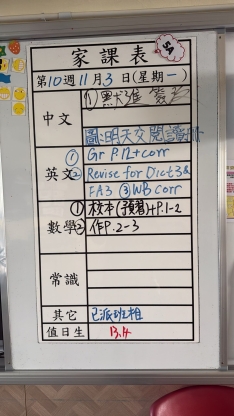 家課表
5A
第10週11月3日(星期一)
中文 ①默進簽名
圖:明天交閱讀
英文 ① Gr P.12+corr
② Revise for Dict3&
FA3 ③ WB corr
數學 ① 校本(預習)4P.1-2
② 作P.2-3
常識
其它 已派班相
值日生 13,14